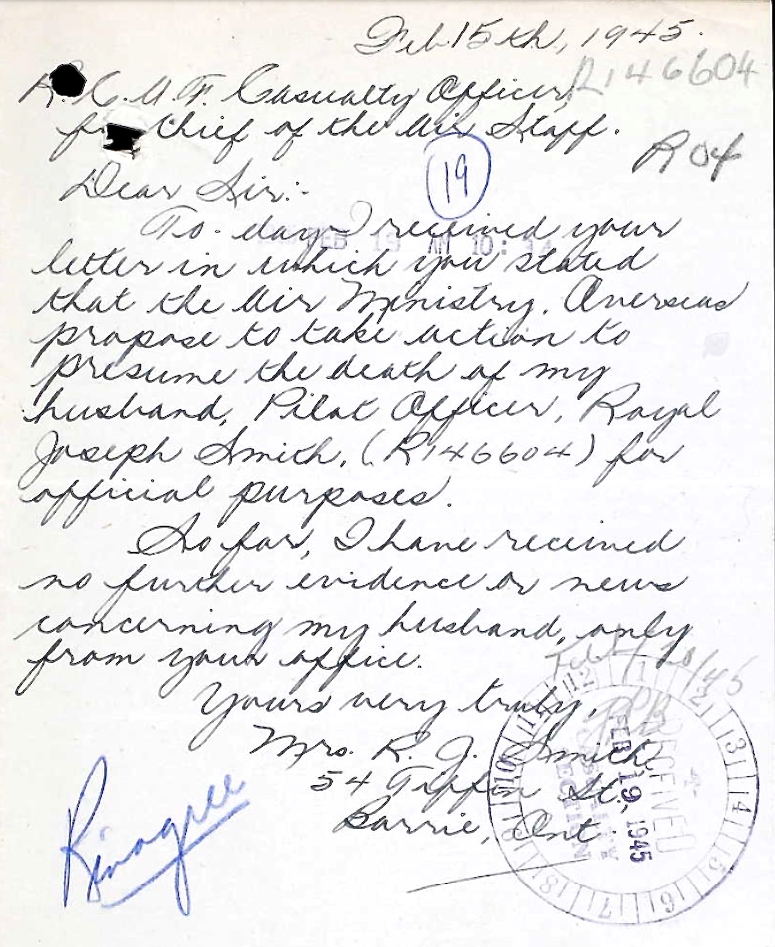 Feb. 15th, 1945.
R.C.A.F. Casualty Officer, R146604
for Chief of the Air Staff.
R04
Dear Sir:-
19
To-day I received your
FEB 19 AM 10:
letter in which you stated
that the Air Ministry, Overseas
propose to take action to
presume the death of my
husband, Pilot Officer, Royal
Joseph Smith, (R146604) for
official purposes.
So far, I have received
no further evidence or news
concerning my husband, only
from your office.
Yours very truly,
Mrs. R. J. Smith.
54 Tiffin St.,
Barrie, Ont.
RECEIVED
FEB 19 1945
CASUALTY
SECTION